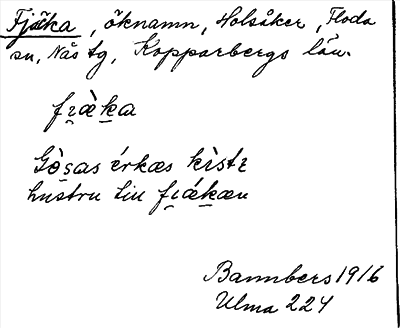 Fjäka, öknamn, Holsåker, Floda
sn, Nås tg, Kopparbergs län.
fı̯ä̀ka
Gòsas érkæs kìstı
hustru till fı̯ákæn
Bannbers 1916
Ulma 224